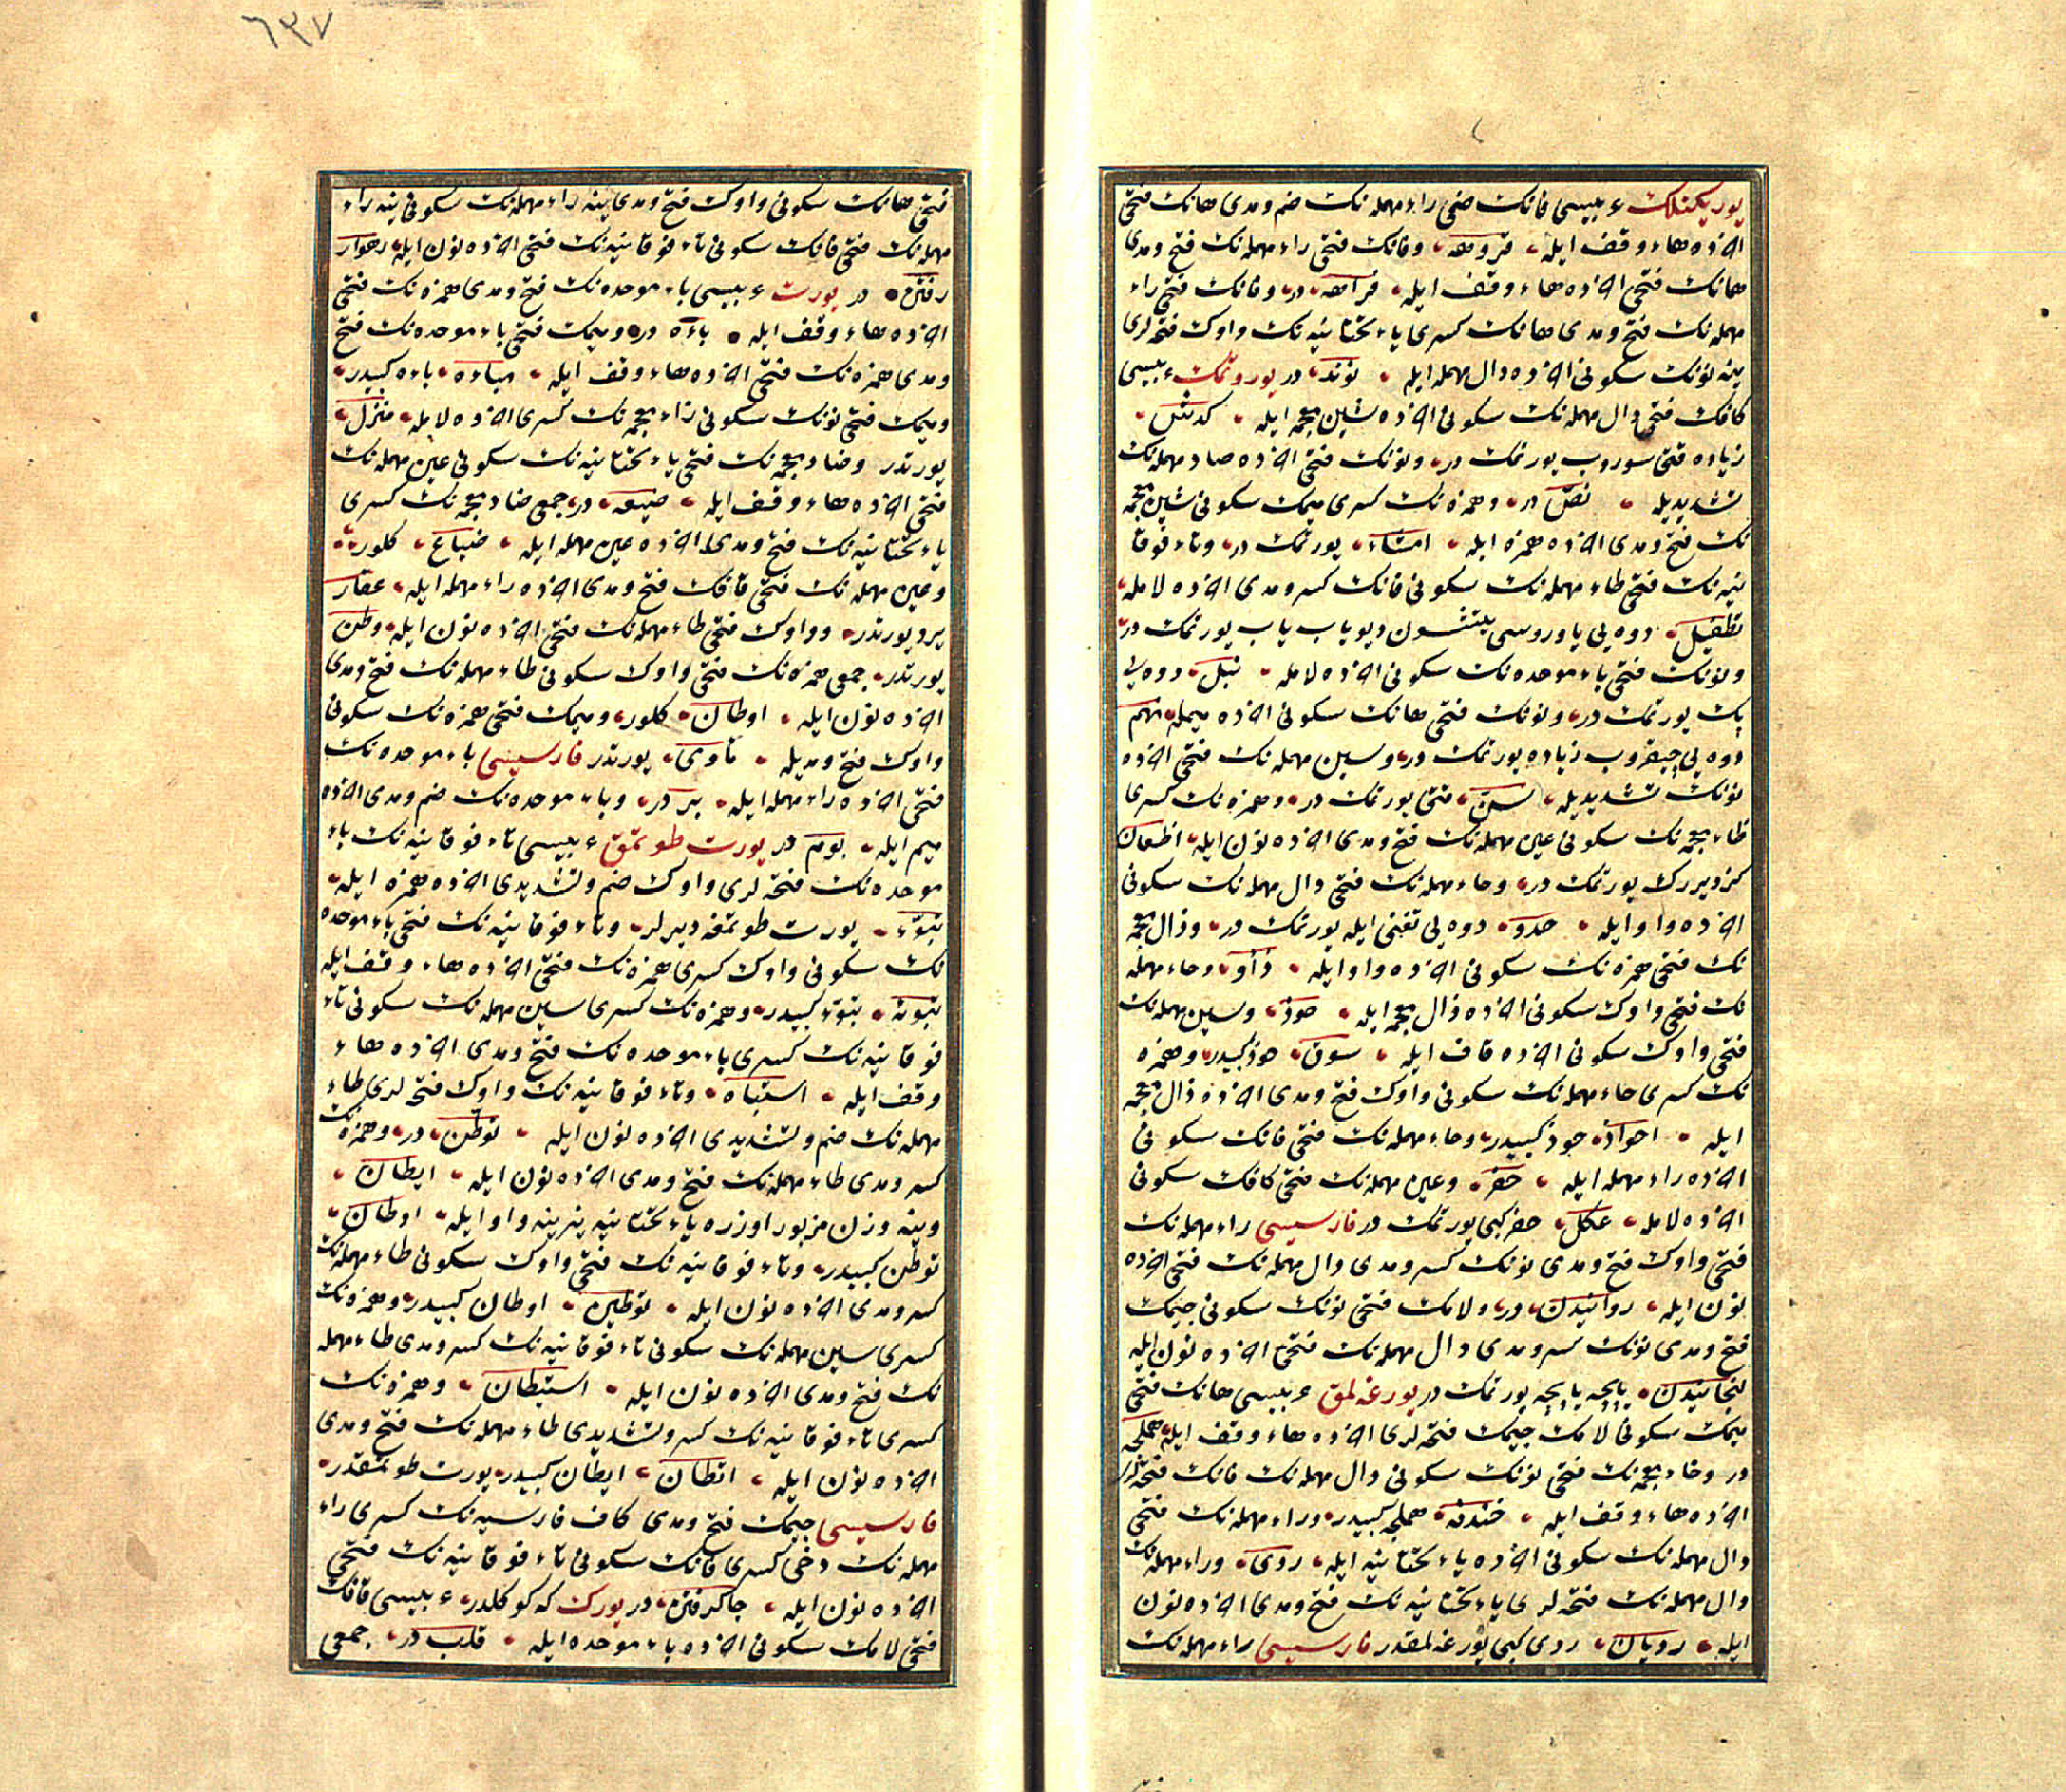 یوریکنلك عربیسی فانك ضمی راء مهمله نك ضم و مدی هانك فتحی
اخرده هاء وقف ایله فروهه وفانك فتحی راء مهمله نك فتح و مدی
هانك فتحی اخرده هاء وقف ایله فراهه در وفانك فتحی راء
مهمله نك فتح و مدی هانك کسری یاء تحتانیه نك واوك فتحه لری
ینه نونك سکونی اخرده دال مهمله ایله در یوروتمك عربیسی
کافك فتحی دال مهمله نك سکونی اخرده شین معجمه ایله کدش
زیاده قتی سوروب یورتمك در ونونك فتحی اخرده صاد مهمله نك
تشدیدیله نص در وهمزه نك کسری میمك سکونی شین معجمه
نك فتح و مدی اخرده همزه ایله امشاء یورتمك در وتاء فوقا
نیه نك فتحی طاء مهمله نك سکونی فانك کسر و مدی اخرده لامله
تطفیل دوه یی یاوروسی یتشسون دیو یاب یاب یورتمك در
ونونك فتحی باء موحده نك سکونی اخرده لامله نبل دوه یی
پك یورتمك در ونونك فتحی هانك سکونی اخرده میمله نهم
دوه یی چیقروب زیاده یورتمك در وسین مهمله نك فتحی اخرده
نونك تشدیدیله سن قتی یورتمك در وهمزه نك کسری
ظاء معجمه نك سکونی عین مهمله نك فتح و مدی اخرده نون ایله اظعان
کزدیررك یورتمك در وحاء مهمله نك فتحی دال مهمله نك سکونی
اخرده واو ایله حدو دوه یی تغنی ایله یورتمك در وذال معجمه
نك فتحی همزه نك سکونی اخرده واو ایله ذأو وحاء مهمله
نك فتحی واوك سکونی اخرده ذال معجمه ایله حوذ وسین مهمله نك
فتحی واوك سکونی اخرده قاف ایله سوق حوذ کبیدر وهمزه
نك کسری حاء مهمله نك سکونی واوك فتح و مدی اخرده ذال معجمه
ایله احواذ حوذ کبیدر وحاء مهمله نك فتحی فانك سکونی
اخرده راء مهمله ایله حفر وعین مهمله نك فتحی کافك سکونی
اخرده لامله عکل حفر کبی یورتمك در فارسیسی راء مهمله نك
فتحی واوك فتح و مدی نونك کسر و مدی دال مهمله نك فتحی اخرده
نون ایله روانیدن در ولامك فتحی نونك سکونی جیمك
فتح و مدی نونك کسر و مدی دال مهمله نك فتحی اخرده نون ایله
لنجانیدن یاپچه یاپچه یورتمك در یورغه لمق عربیسی هانك فتحی
میمك سکونی لامك جیمك فتحه لری اخرده هاء وقف ایله هملجه
در وخاء معجمه نك فتحی نونك سکونی دال مهمله نك فانك فتحه لری
اخرده هاء وقف ایله خندفه هملجه کبیدر وراء مهمله نك فتحی
دال مهمله نك سکونی اخرده یاء تحتانیه ایله ردی وراء مهمله نك
دال مهمله نك فتحه لری یاء تحتانیه نك فتح و مدی اخرده نون
ایله ردیان ردی کبی یورغه لمقدر فارسیسی راء مهمله نك
فتحی هانك سکونی واوك فتح و مدی ینه راء مهمله نك سکونی ینه راء
مهمله نك فتحی فانك سکونی تاء فوقانیه نك فتحی اخرده نون ایله رهوار
رفتن در یورت عربیسی باء موحده نك فتح و مدی همزه نك فتحی
اخرده هاء وقف ایله باءه در ومیمك فتحی باء موحده نك فتح
و مدی همزه نك فتحی اخرده هاء وقف ایله مباءه باءه کبیدر
ومیمك فتحی نونك سکونی زاء معجمه نك کسری اخرده لامله منزل
یورتدر وضاد معجمه نك فتحی یاء تحتانیه نك سکونی عین مهمله نك
فتحی اخرده هاء وقف ایله ضیعه در جمعی ضاد معجمه نك کسری
یاء تحتانیه نك فتح و مدی اخرده عین مهمله ایله ضیاع کلور
وعین مهمله نك فتحی قافك فتح و مدی اخرده راء مهمله ایله عقار
یرد یورتدر وواوك فتحی طاء مهمله نك فتحی اخرده نون ایله وطن
یورتدر جمعی همزه نك فتحی واوك سکونی طاء مهمله نك فتح و مدی
اخرده نون ایله اوطان کلور ومیمك فتحی همزه نك سکونی
واوك فتح و مدیله مأوی یورتدر فارسیسی باء موحده نك
فتحی اخرده راء مهمله ایله بر در وباء موحده نك ضم و مدی اخرده
میم ایله بوم در یورت طوتمق عربیسی تاء فوقانیه نك باء
موحده نك فتحه لری واوك ضم و تشدیدی اخرده همزه ایله
تبوء یورت طوتمغه دیرلر وتاء فوقانیه نك فتحی باء موحده
نك سکونی واوك کسری همزه نك فتحی اخرده هاء وقف ایله
تبوئه تبوء کبیدر وهمزه نك کسری سین مهمله نك سکونی تاء
فوقانیه نك کسری باء موحده نك فتح و مدی اخرده هاء
وقف ایله استباه وتاء فوقانیه نك واوك فتحه لری طاء
مهمله نك ضم و تشدیدی اخرده نون ایله توطن در وهمزه نك
کسر و مدی طاء مهمله نك فتح و مدی اخرده نون ایله ایطان
وینه وزن مزبور اوزره یاء تحتانیه یرینه واو ایله اوطان
توطن کبیدر وتاء فوقانیه نك فتحی واوك سکونی طاء مهمله نك
کسر و مدی اخرده نون ایله توطین اوطان کبیدر وهمزه نك
کسری سین مهمله نك سکونی تاء فوقانیه نك کسر و مدی طاء مهمله
نك فتح و مدی اخرده نون ایله استیطان وهمزه نك
کسری تاء فوقانیه نك کسر و تشدیدی طاء مهمله نك فتح و مدی
اخرده نون ایله اتطان ایطان کبیدر یورت طوتمقدر
فارسیسی جیمك فتح و مدی کاف فارسیه نك کسری راء
مهمله نك دخی کسری فانك سکونی تاء فوقانیه نك فتحی
اخرده نون ایله جاکرفتن در یورك که کوکلدر عربیسی قافك
فتحی لامك سکونی اخرده باء موحده ایله قلب در جمعی